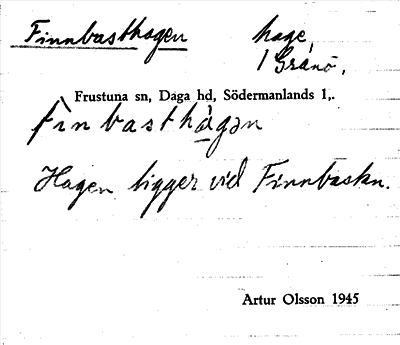 Finnbasthagen hage
/ Gränö.
Frustuna sn, Daga hd, Södermanlands l,.
finbasthàgən
Hagen ligger vid Finnbaskn.
Artur Olsson 1945